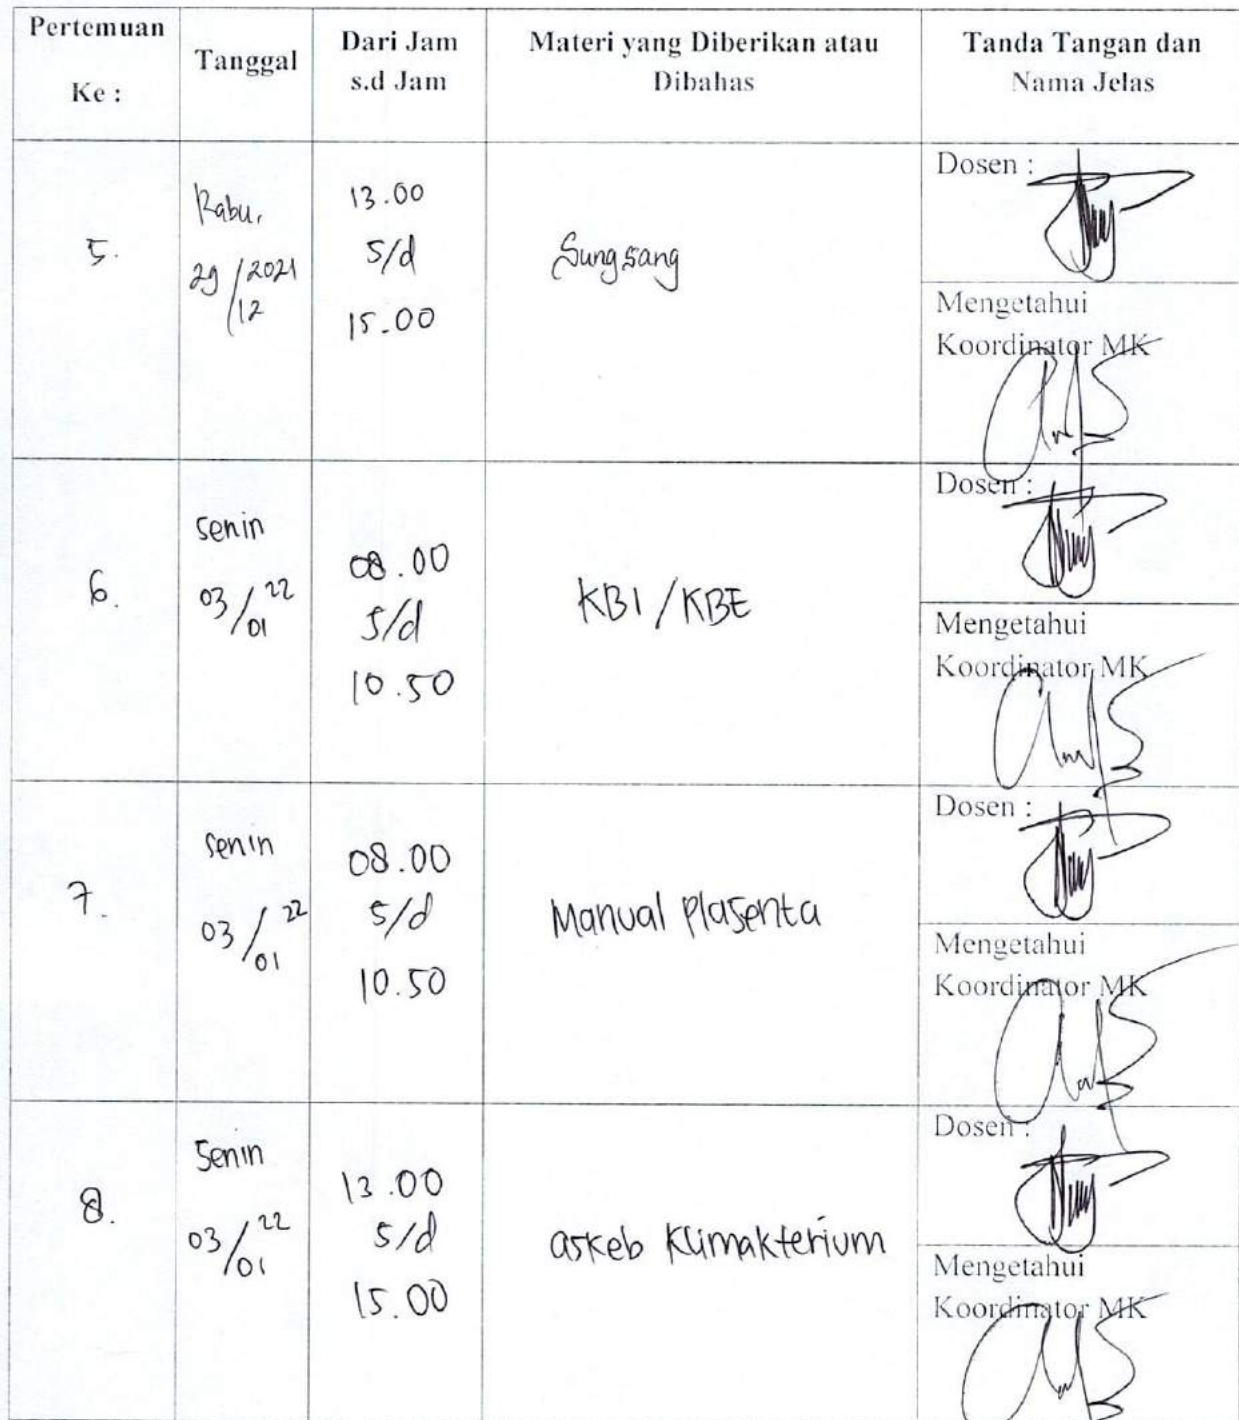 Pertemuan
Ke :
Tanggal
Dari Jam
s.d Jam
Materi yang Diberikan atau
Dibahas
Tanda Tangan dan
Nama Jelas
5.
Rabu,
29/2021
/12
13.00
s/d
15.00
Sungsang
Dosen :
Mengetahui
Koordinator MK
6.
Senin
03/01 22
08.00
s/d
10.50
KBI/KBE
Dosen :
Mengetahui
Koordinator MK
7.
Senin
03/01 22
08.00
s/d
10.50
Manual Plasenta
Dosen :
Mengetahui
Koordinator MK
8.
Senin
03/01 22
13.00
s/d
15.00
askeb Klimakterium
Dosen :
Mengetahui
Koordinator MK